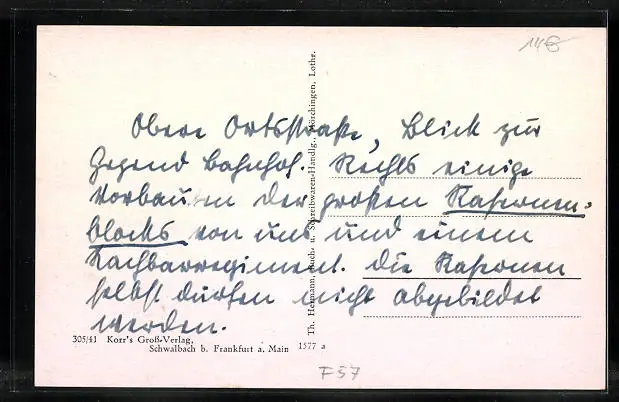 11€
Obere Ortsstraße, Blick zur
Gegend Bahnhof. Rechts einige
Vorbauten der großen Kasernen-
blocks von uns und einem
Nachbarregiment. Die Kasernen
selbst dürfen nicht abgebildet
werden.
305/41 Korr's Groß-Verlag,
Schwalbach b. Frankfurt a. Main
1577 a
Th. Hermann, Buch- u. Schreibwaren-Handlg., Mörchingen, Lothr.
F57